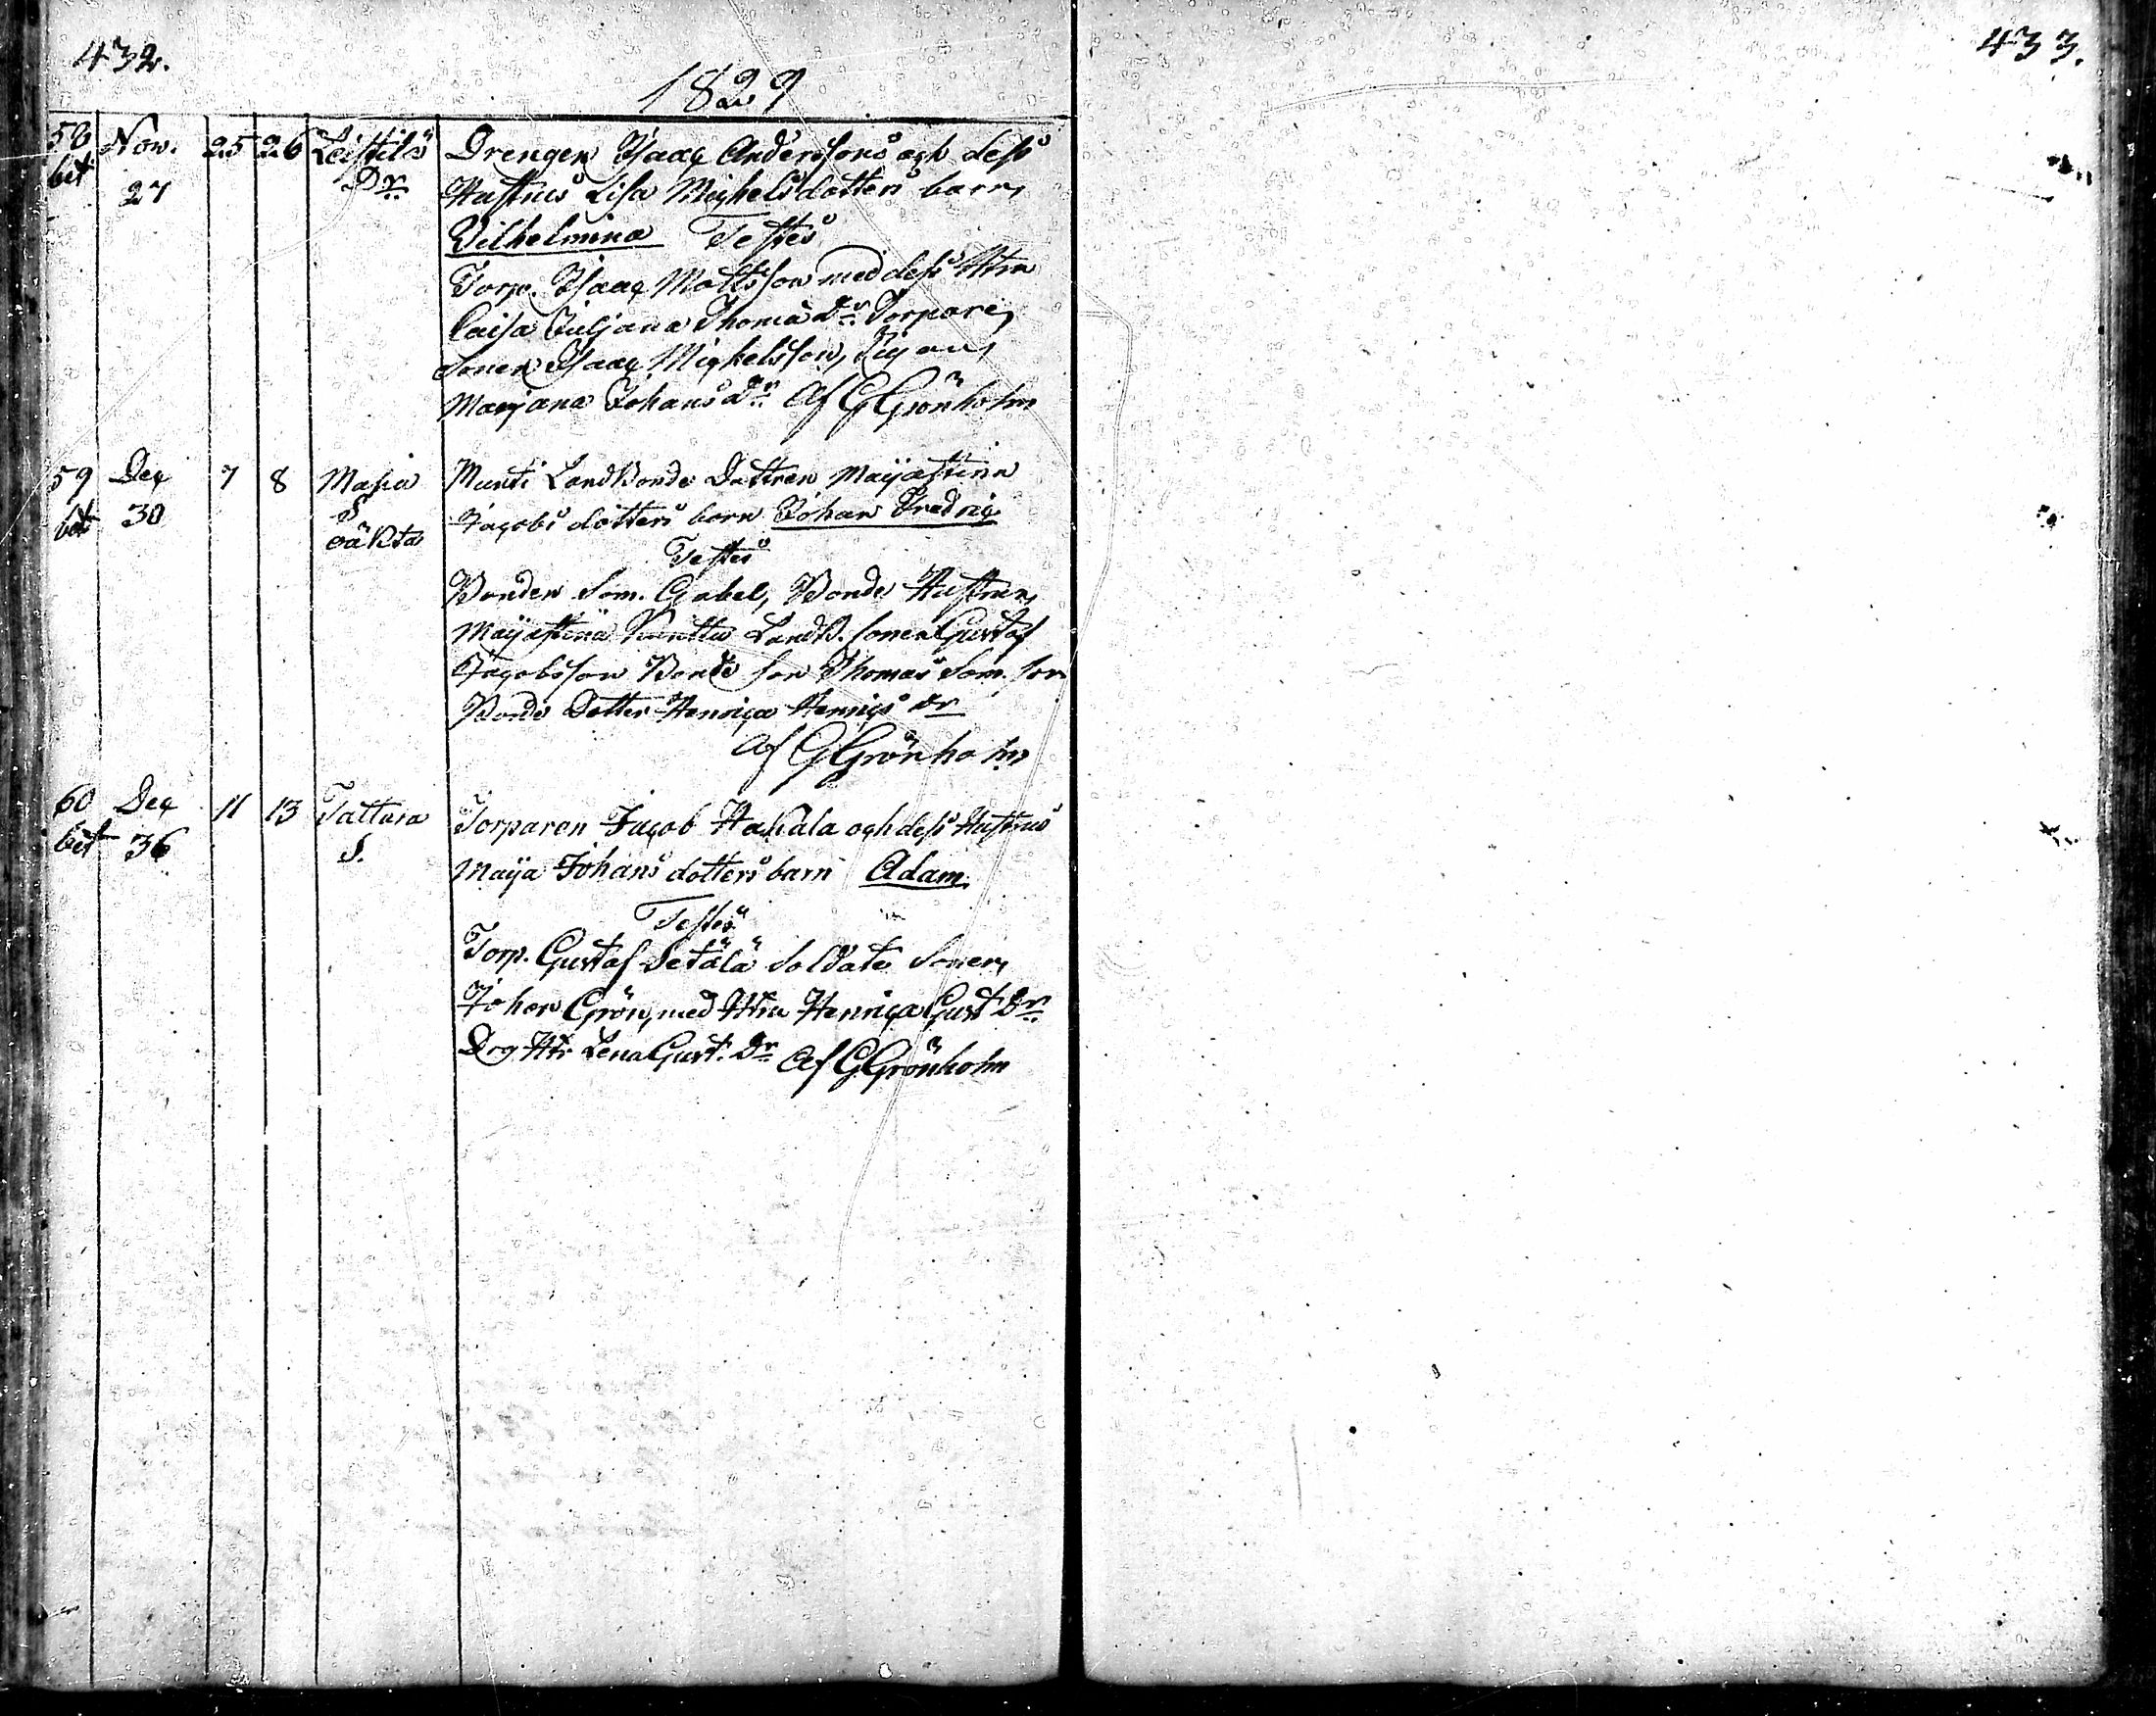 432.
433.
1829
58 Nov. 25 26 Leistilä Drengen Isaac Anderssons och dess
bet 27 Dr. Hustrus Lisa Michelsdotters barn
Vilhelmina Testes
Torp. Isaac Mattsson med dess Htru
Caisa Juljana Thomä Dr. Torpare
Sonen Isaac Michelsson, Pigan
Marjana Johans Dr. Af G Grönholm
59 Dec 7 8 Masia Munti Landbonde Dottren Maijastina
bet 30 S Jacobs dotters barn Johan Fredric
oäkta Testes
Bonden Sam. Cabel, Bonde Hustrun
Maijastina Landb. sonen Gustaf
Jacobsson Bonde son Thomas Sam. son
Bonde Dotter Henrica Henrics Dr
Af G Grönholm
60 Dec 11 13 Tattara Torparen Jacob Hakala och dess Hustrus
bet 36 S. Maija Johans dotters barn Adam.
Testes
Torp. Gustaf Setälä Soldate Sonen
Johan Grön, med Htru Henrica Gust Dr.
Drg Htr Lena Gust. Dr Af G Grönholm